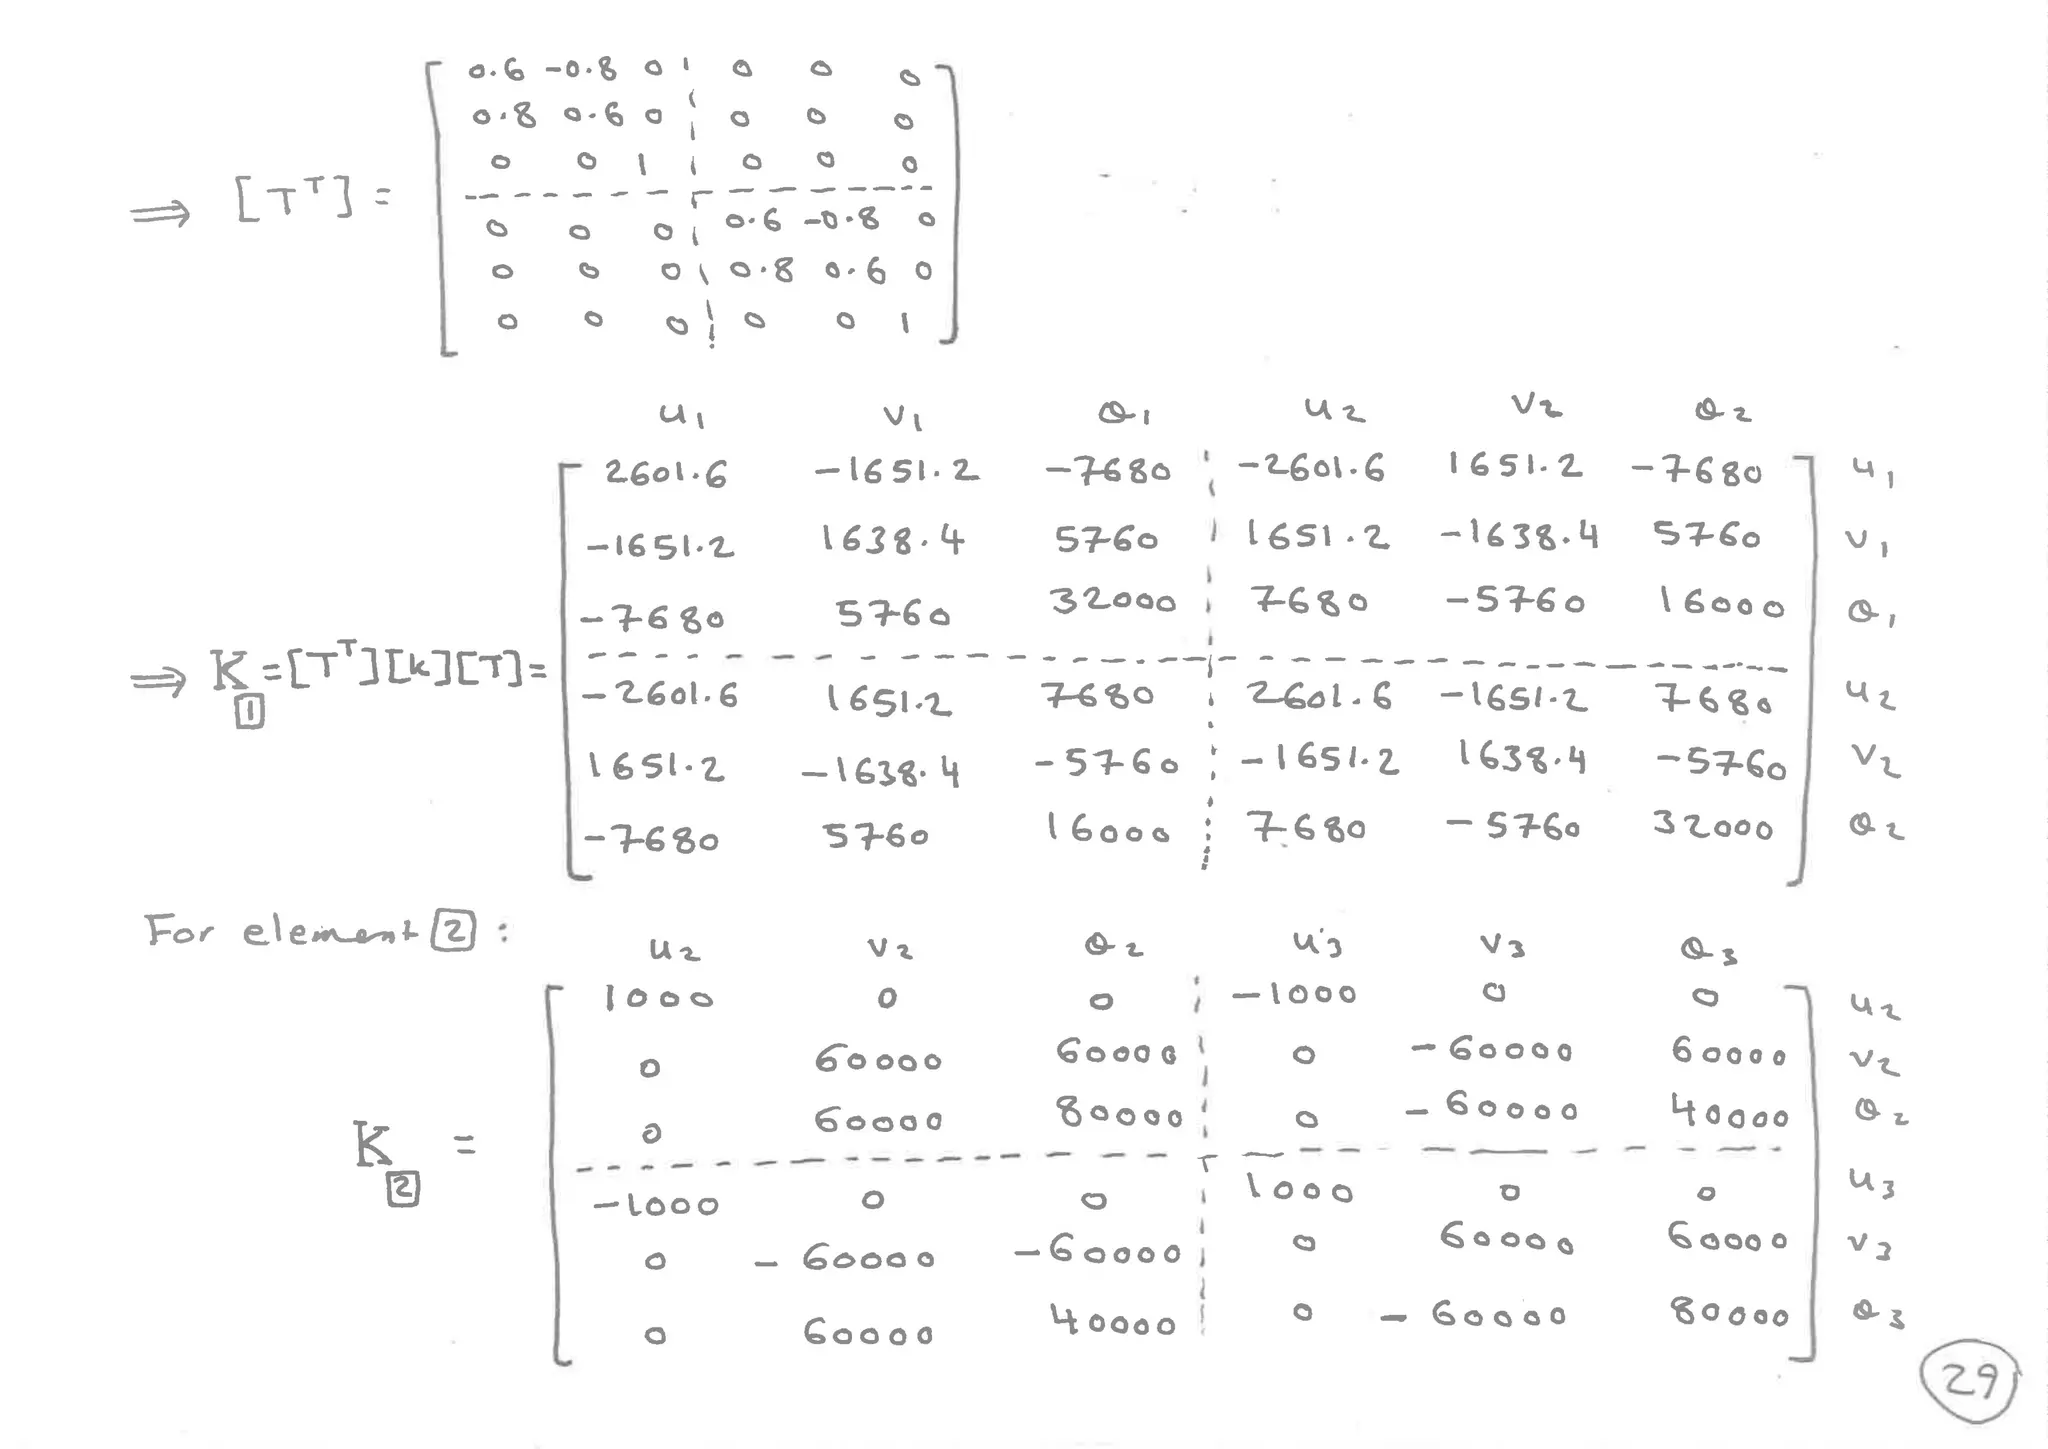 0.6 -0.8 0 0 0 0
0.8 0.6 0 0 0 0
0 0 1 0 0 0
⇒ [T^T] =
0 0 0 0.6 -0.8 0
0 0 0 0.8 0.6 0
0 0 0 0 0 1
u1 v1 θ1 u2 v2 θ2
2601.6 -1651.2 -7680 -2601.6 1651.2 -7680 u1
-1651.2 1638.4 5760 1651.2 -1638.4 5760 v1
-7680 5760 32000 7680 -5760 16000 θ1
⇒ K1 = [T^T][k][T] =
-2601.6 1651.2 7680 2601.6 -1651.2 7680 u2
1651.2 -1638.4 -5760 -1651.2 1638.4 -5760 v2
-7680 5760 16000 7680 -5760 32000 θ2
For element 2 :
u2 v2 θ2 u3 v3 θ3
1000 0 0 -1000 0 0 u2
0 60000 60000 0 -60000 60000 v2
0 60000 80000 0 -60000 40000 θ2
K2 =
-1000 0 0 1000 0 0 u3
0 -60000 -60000 0 60000 60000 v3
0 60000 40000 0 -60000 80000 θ3
29